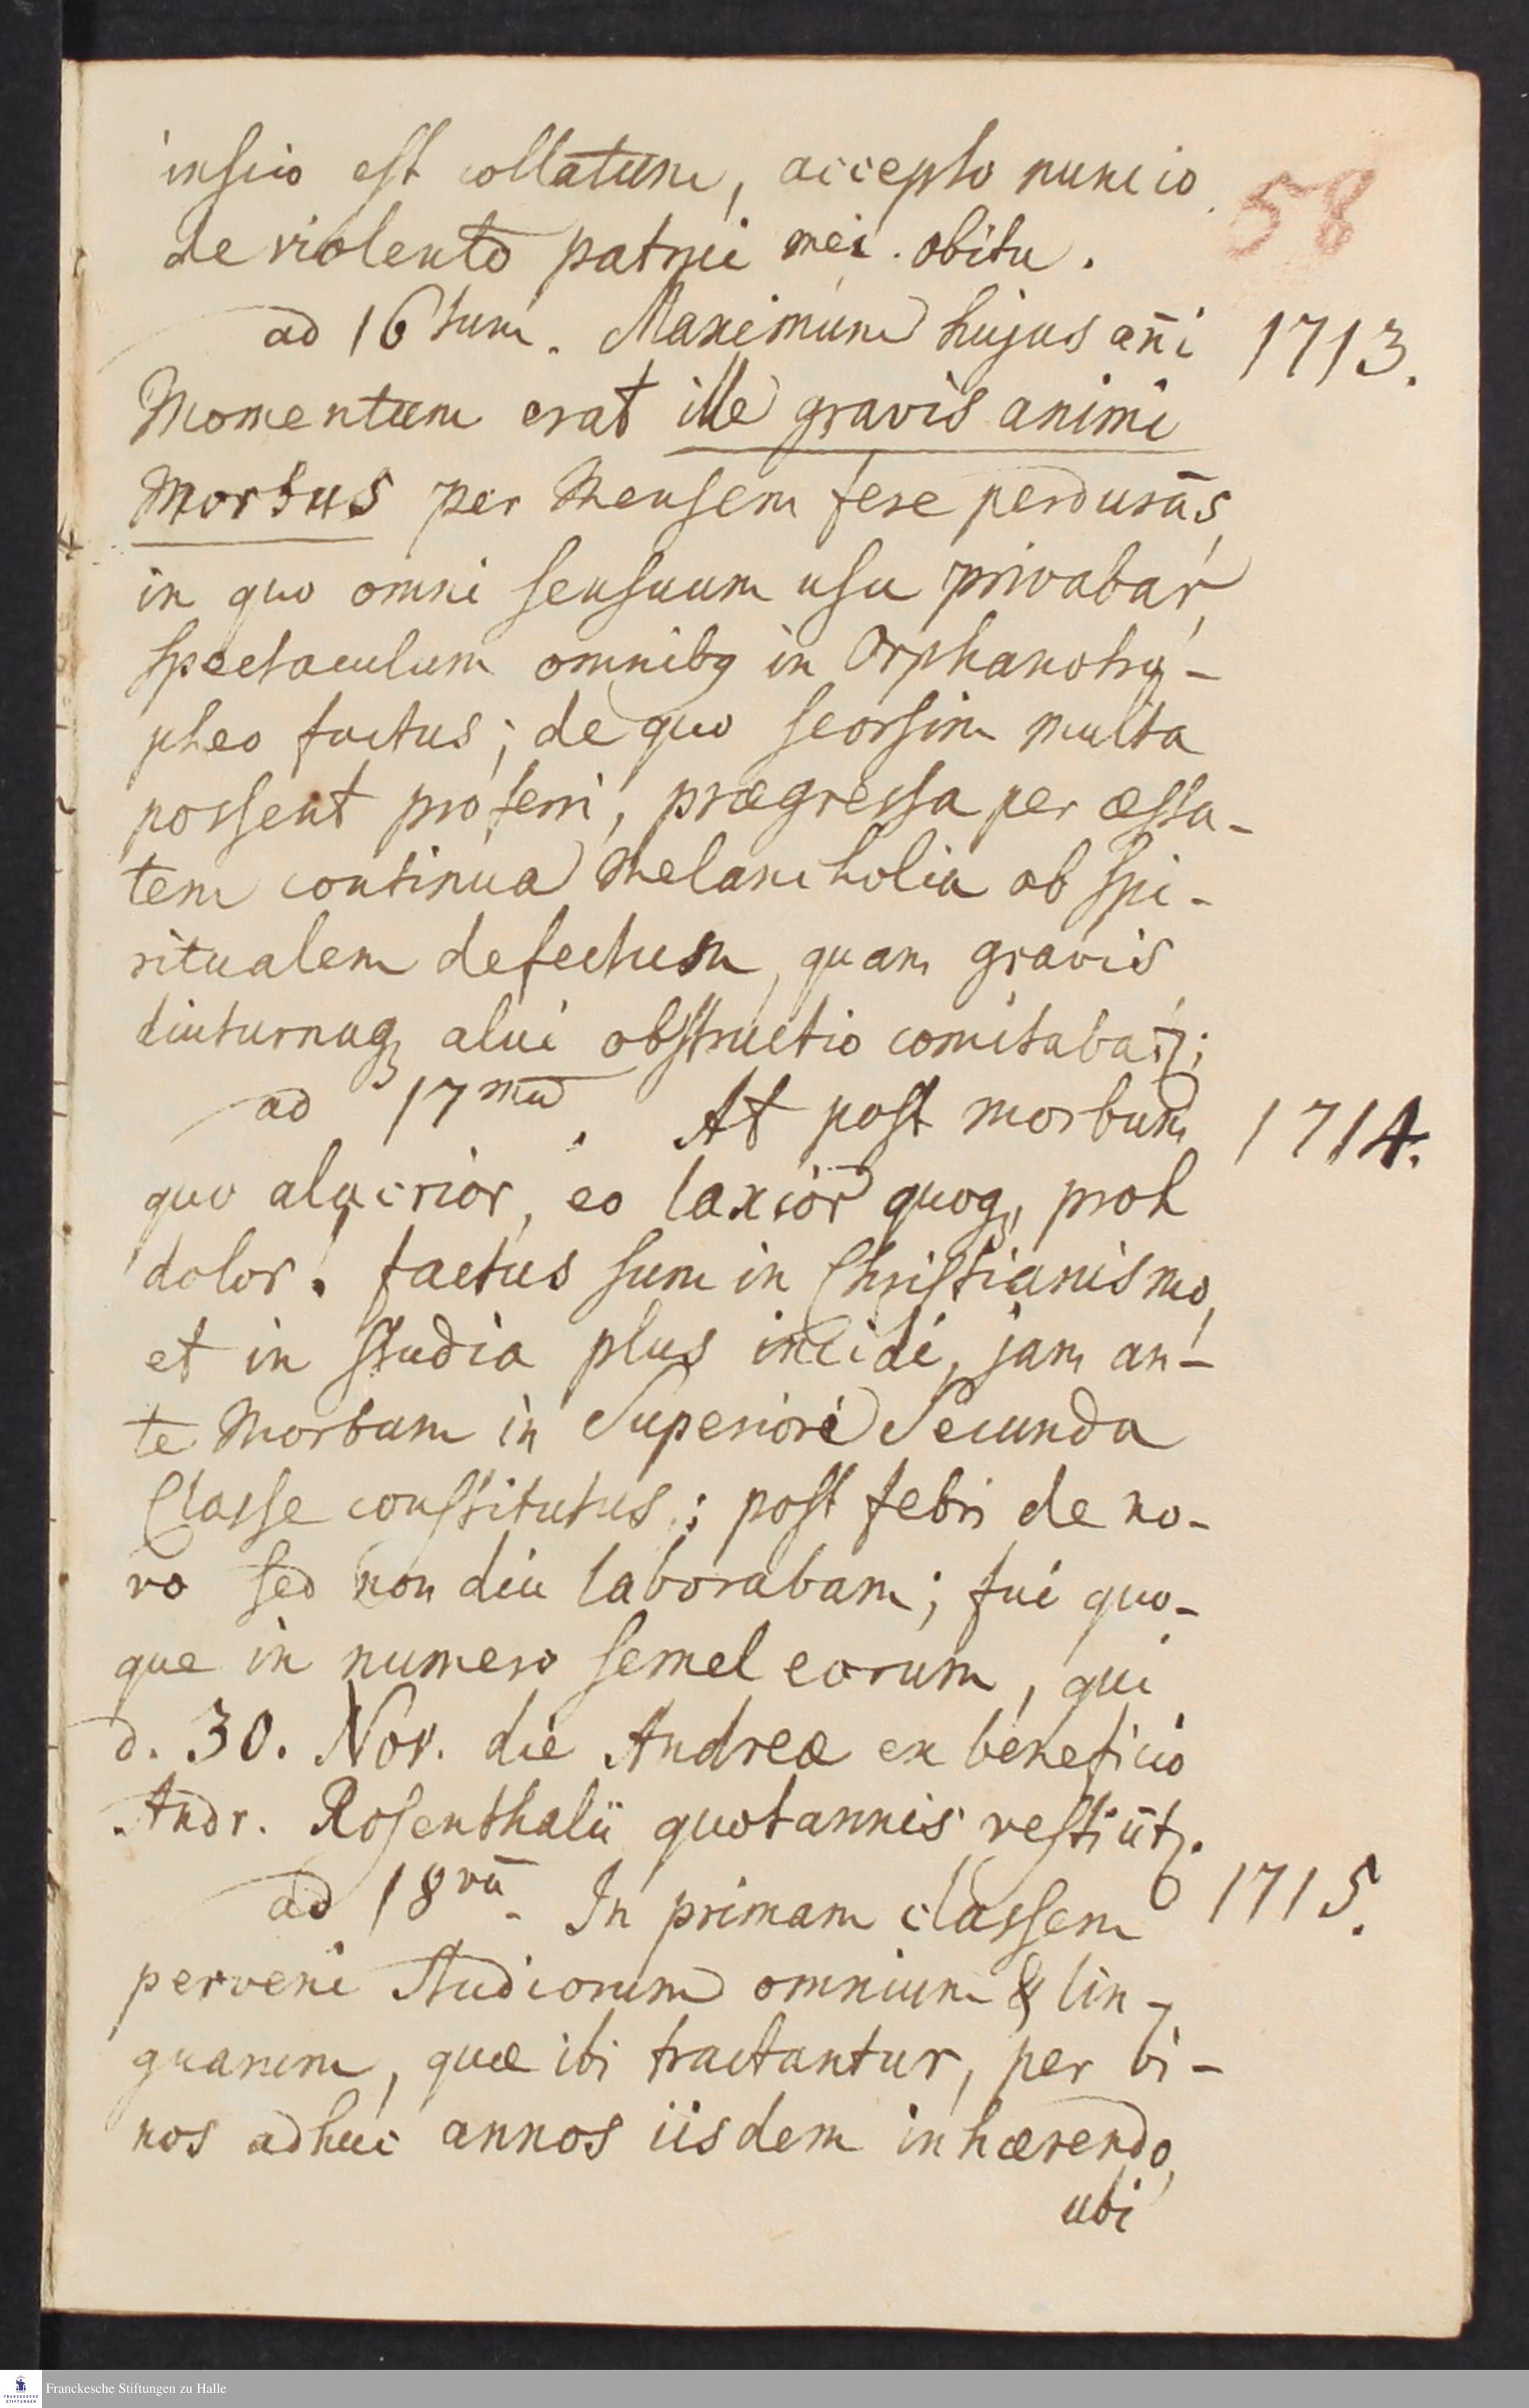 inscio est collatum, accepto nuncio
58
de violento patrui mei obitu.
ad 16tum. Maximum hujus an̄i 1713.
Momentum erat ille gravis animi
Morbus per Mensem fere perdurās,
in quo omni sensuum usu privabar,
spectaculum omnibꝫ in Orphanotro-
pheo factus; de quo seorsim multa
possent proferri, prægressa per æsta-
tem continua Melancholia ob spi-
ritualem defectum, quam gravis
diuturnaqꝫ alvi obstructio comitabatꝫ;
ad 17mū. At post morbum 1714.
quo alacrior, eo laxior quoqꝫ, proh
dolor! factus sum in Christianismo,
et in studia plus incidi, jam an-
te Morbum in Superiori Secunda
Classe constitutus; post febri de no-
vo sed non diu laborabam; fui quo-
que in numero semel eorum, qui
d. 30. Nov. die Andreæ ex beneficio
Andr. Rosenthalii quotannis vestiūtꝫ.
ad 18vū. In primam classem 1715.
perveni Studiorum omnium & lin-
guarum, quæ ibi tractantur, per bi-
nos adhuc annos iisdem inhærendo,
ubi
Franckesche Stiftungen zu Halle